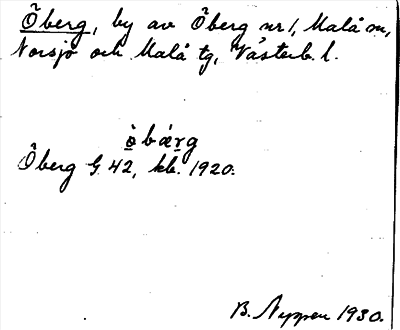 Öberg, by av Öberg nr 1, Malå sn,
Norsjö och Malå tg, Västerb. l.
ò̱bæṟg
Öberg G 42, kb. 1920.
B. Nyppen 1930.